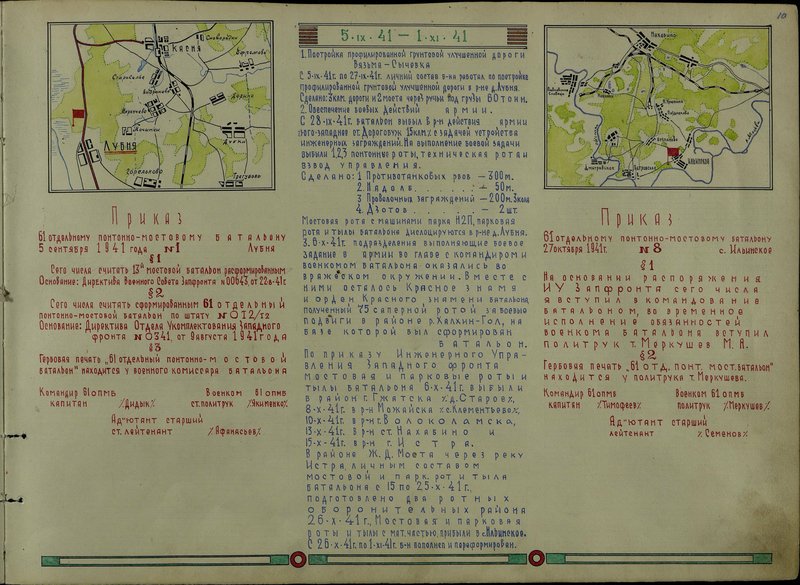 10
КАСНЯ
ЛУБНЯ
Приказ
61 отдельному понтонно-мостовому батальону
5 сентября 1941 года №1 Лубня
§1
Сего числа считать 13й мостовой батальон расформированным
Основание: Директива Военного Совета Запфронта №0043, от 22-8-41г.
§2
Сего числа считать сформированным 61 отдельный
понтонно-мостовой батальон по штату №012/12
Основание: Директива Отдела Укомплектования Западного
фронта №0341, от 9 августа 1941 года
§3
Гербовая печать „61 отдельный понтонно-мостовой
батальон" находится у военного комиссара батальона
Командир 61 опмб Военком 61 опмб
капитан /Дидык/. ст.политрук /Якименко/.
Ад'ютант старший
ст. лейтенант /Афанасьев/.
5·IX·41 — 1·XI·41
1. Постройка профилированной грунтовой улучшенной дороги
Вязьма-Сычевка
С 5-IX-41г. по 27-IX-41г. личный состав б-на работал по постройке
профилированной грунтовой улучшенной дороги в р-не д. Лубня.
Сделано: 3 клм. дороги и 2 моста через ручьи под грузы 60 тонн.
2. Обеспечение боевых действий армии.
С 28-IX-41г. батальон выбыл в р-н действия армии
юго-западнее от. Дорогобуж 15 клм. с задачей устройства
инженерных заграждений. На выполнение боевой задачи
выбыли 1,2,3 понтонные роты, техническая рота и
взвод управления.
Сделано: 1 Противотанковых рвов — 300м.
2. Надолб — 50м.
3 Проволочных заграждений — 200м. 3 кола
4. Дзотов — 2 шт.
Мостовая рота с машинами парка Н2П, парковая
рота и тылы батальона дислоцируются в р-не д. Лубня.
3.б-х-41г. подразделения выполняющие боевое
задание в армии во главе с командиром и
военкомом батальона оказались во
вражеском окружении. Вместе с
ними осталось Красное знамя
и орден Красного знамени батальона,
полученный 75 саперной ротой за боевые
подвиги в районе р. Халхин-Гол, на
базе которой был сформирован
батальон.
По приказу Инженерного Упра-
вления Западного фронта
мостовая и парковые роты и
тылы батальона 6-х-41г. выбыли
в район г. Гжатска /д. Старое/.
8-х-41г. в р-н Можайска /с. Клементьево/,
10-х-41г. в р-н г. Волоколамска,
13-х-41г. в р-н ст. Нахабино и
15-х-41г. в р-н г. Истра.
В районе Ж.Д. Моста через реку
Истра, личным составом
мостовой и парк. рот и тыла
батальона с 15 по 25-х-41г.,
подготовлено два ротных
оборонительных района
26-х-41г., Мостовая и парковая
роты и тылы с мат.частью, прибыли в с. Ильинское.
С 26-х-41г. по 1-XI-41г. б-н пополнен и переформирован.
Приказ
61 отдельному понтонно-мостовому батальону
27 октября 1941г. №8 с. Ильинское
§1
На основании распоряжения
ИУ Запфронта сего числа
я вступил в командование
батальоном, во временное
исполнение обязанностей
военкома батальона вступил
политрук т. Меркушев М. А.
§2
Гербовая печать „61 отд. понт. мост. батальон"
находится у политрука т. Меркушева.
Командир 61 опмб Военком 61 опмб
капитан /Тимофеев/. политрук /Меркушев/.
Ад'ютант старший
лейтенант /Семенов/.